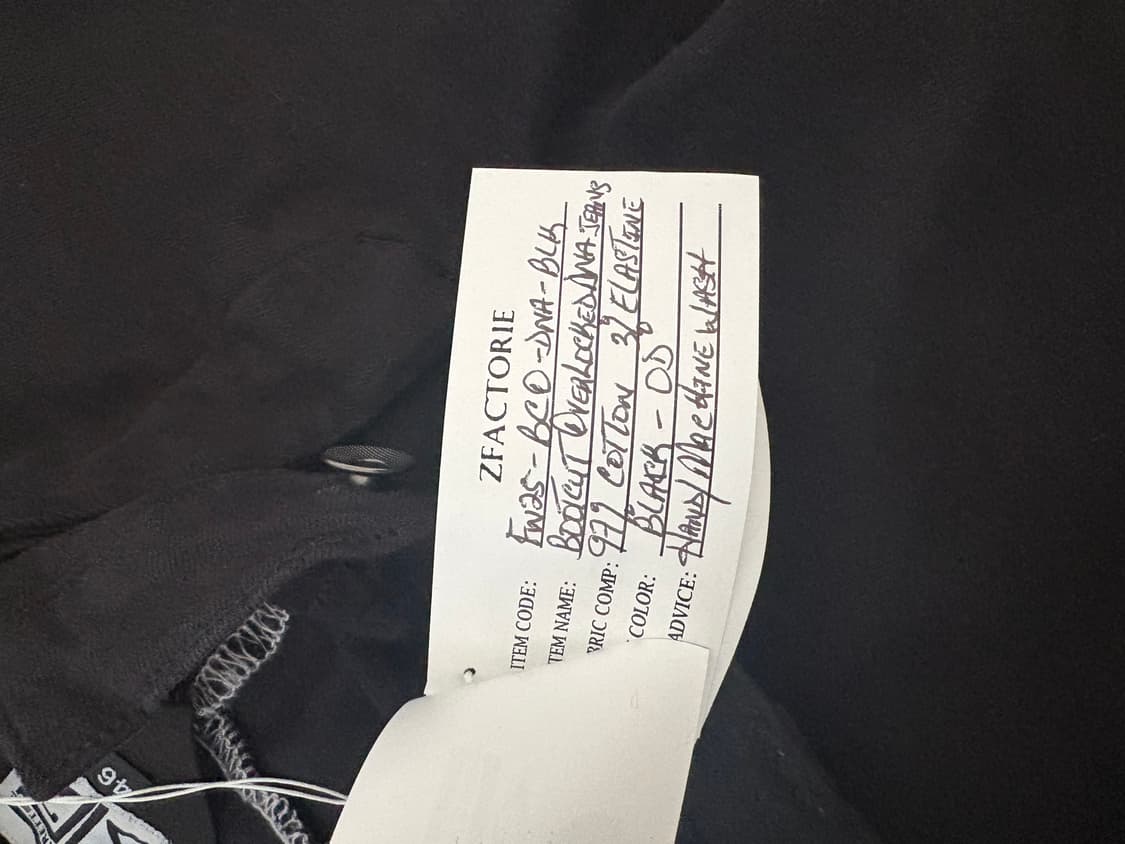 ZFACTORIE
ITEM CODE: FW25-BCO-DNA-BLK
TEM NAME: BOOTCUT OVERLOCKED DNA JEANS
BRIC COMP: 97% COTTON 3% ELASTINE
COLOR: BLACK - OD
ADVICE: HAND/MACHINE WASH
46